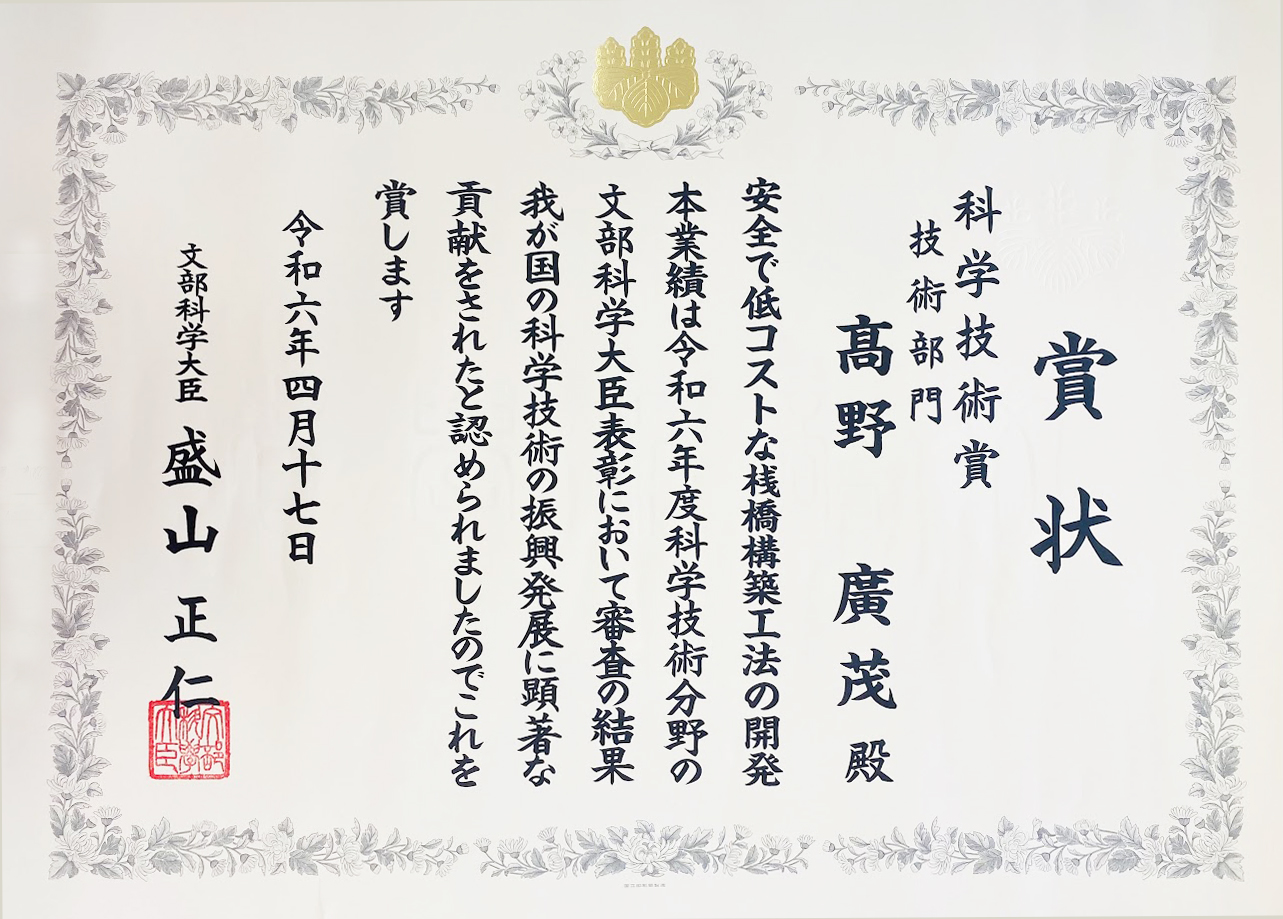 賞状
科学技術賞
技術部門
髙野 廣茂 殿
安全で低コストな桟橋構築工法の開発
本業績は令和六年度科学技術分野の
文部科学大臣表彰において審査の結果
我が国の科学技術の振興発展に顕著な
貢献をされたと認められましたのでこれを
賞します
令和六年四月十七日
文部科学大臣 盛山正仁
文部
科学
大臣